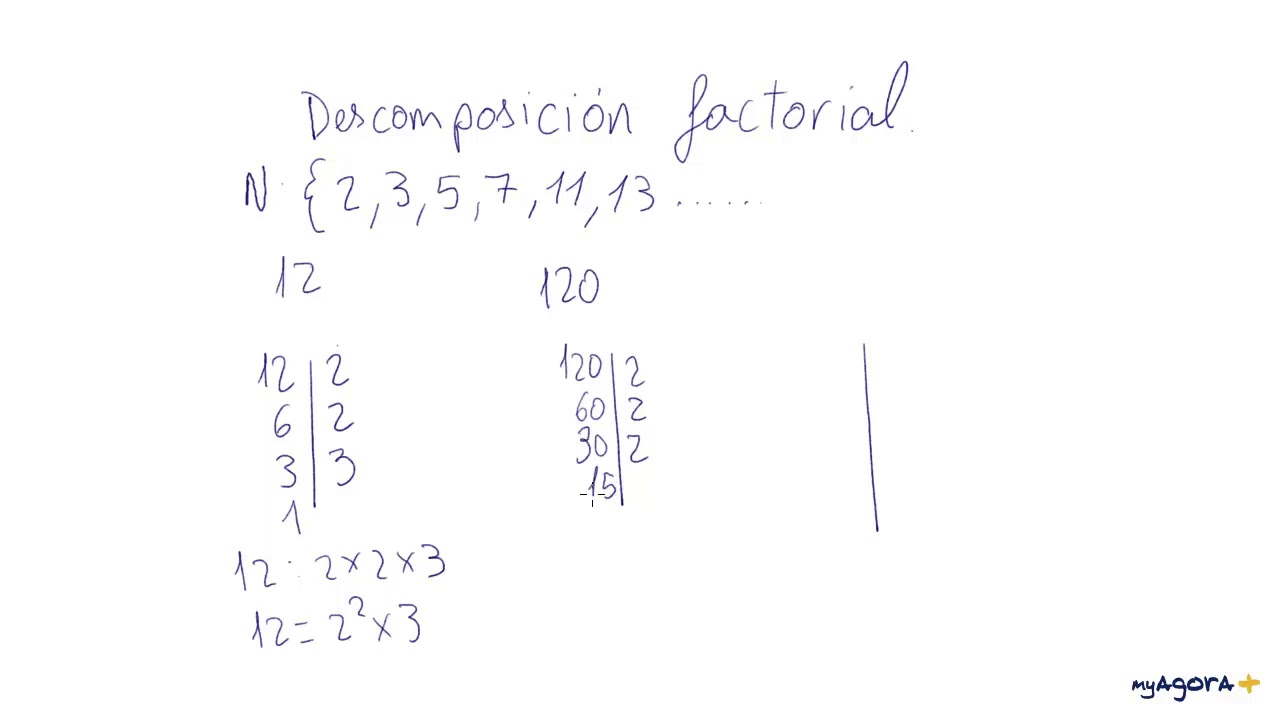 Descomposición factorial.
N {2,3,5,7,11,13 ......
12 120
12 | 2 120 | 2
6 | 2 60 | 2
3 | 3 30 | 2
1 15
12: 2x2x3
12=2²x3
myAgorA+